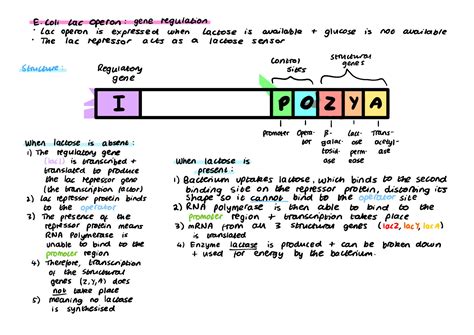 E.Coli Lac Operon: gene regulation
• Lac operon is expressed when lactose is available + glucose is not available
• The lac repressor acts as a lactose sensor
Structure:
Regulatory
gene
Control
sites
Structural
genes
I P O Z Y A
Promoter
Opera-
tor
β-
galac-
tosid-
ase
Lact-
ose
perm-
ease
Trans-
acetyl-
ase
When lactose is absent:
1) The regulatory gene
(lacI) is transcribed +
translated to produce
the lac repressor gene
(the transcription factor)
2) lac repressor protein binds
to the operator
3) The presence of the
repressor protein means
RNA Polymerase is
unable to bind to the
promoter region
4) Therefore, transcription
of the structural
genes (Z, Y, A) does
not take place
5) meaning no lactase
is synthesised
When lactose is
present:
1) Bacterium uptakes lactose, which binds to the second
binding site on the repressor protein, distorting its
shape so it cannot bind to the operator site
2) RNA polymerase is then able to bind to the
promoter region + transcription takes place
3) mRNA from all 3 structural genes (lacZ, lacY, lacA)
is translated
4) Enzyme lactase is produced + can be broken down
+ used for energy by the bacterium.